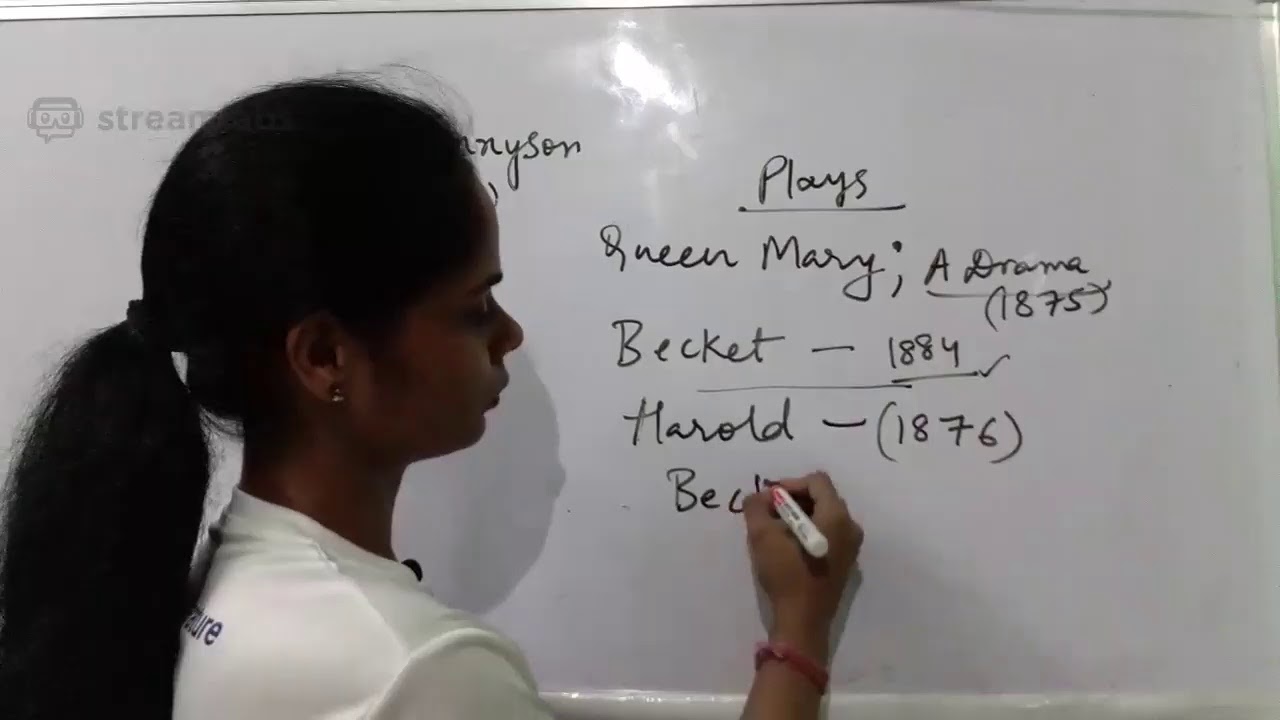 streamlabs
nnyson
Plays
Queen Mary; A Drama
(1875)
Becket – 1884 ✓
Harold – (1876)
Bec